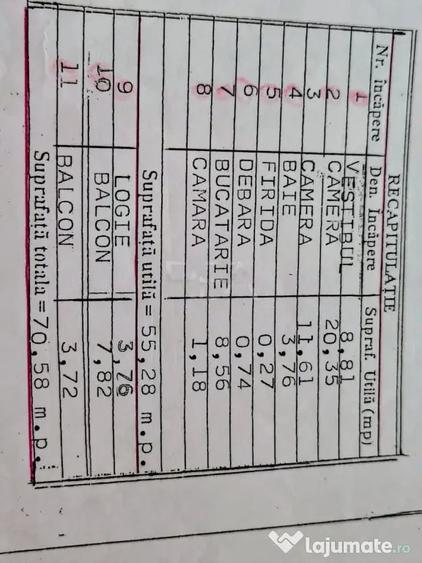 RECAPITULAŢIE
Nr. încăpere Den. Încăpere Supraf. Utilă (mp)
1 VESTIBUL 8,81
2 CAMERA 20,35
3 CAMERA 11,61
4 BAIE 3,76
5 FIRIDA 0,27
6 DEBARA 0,74
7 BUCATARIE 8,56
8 CAMARA 1,18
Suprafaţă utilă = 55,28 m.p.
9 LOGIE 3,76
10 BALCON 7,82
11 BALCON 3,72
Suprafaţă totala = 70,58 m.p.
lajumate.ro